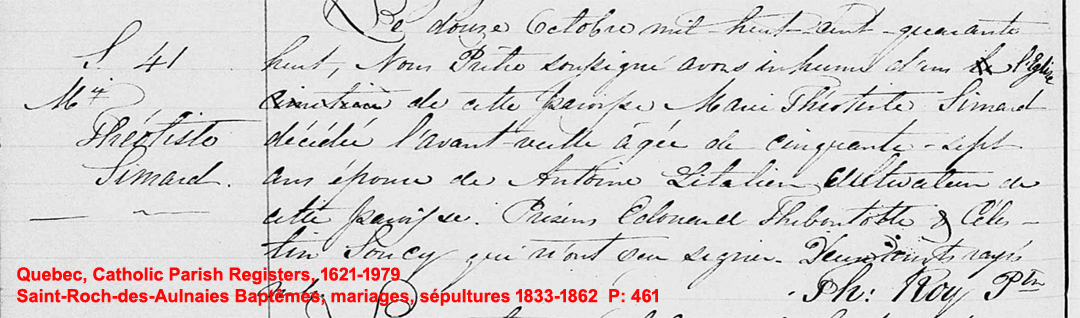 S 41
Mie
Théotiste
Simard.
Le douze Octobre mil-huit-cent-quarante
huit, Nous Prêtre soussigné avons inhumé dans l'Eglise
cimetière de cette paroisse Marie Théotiste Simard
décédée l'avant-veille âgée de cinquante-sept
ans épouse de Antoine Litalien, Cultivateur de
cette paroisse. Présens Edouard Thiboutotte & Céles-
tin Soucy qui n'ont su signer. Deux mots rayés
Ph: Roy Ptre
Quebec, Catholic Parish Registers, 1621-1979
Saint-Roch-des-Aulnaies Baptêmes, mariages, sépultures 1833-1862 P: 461